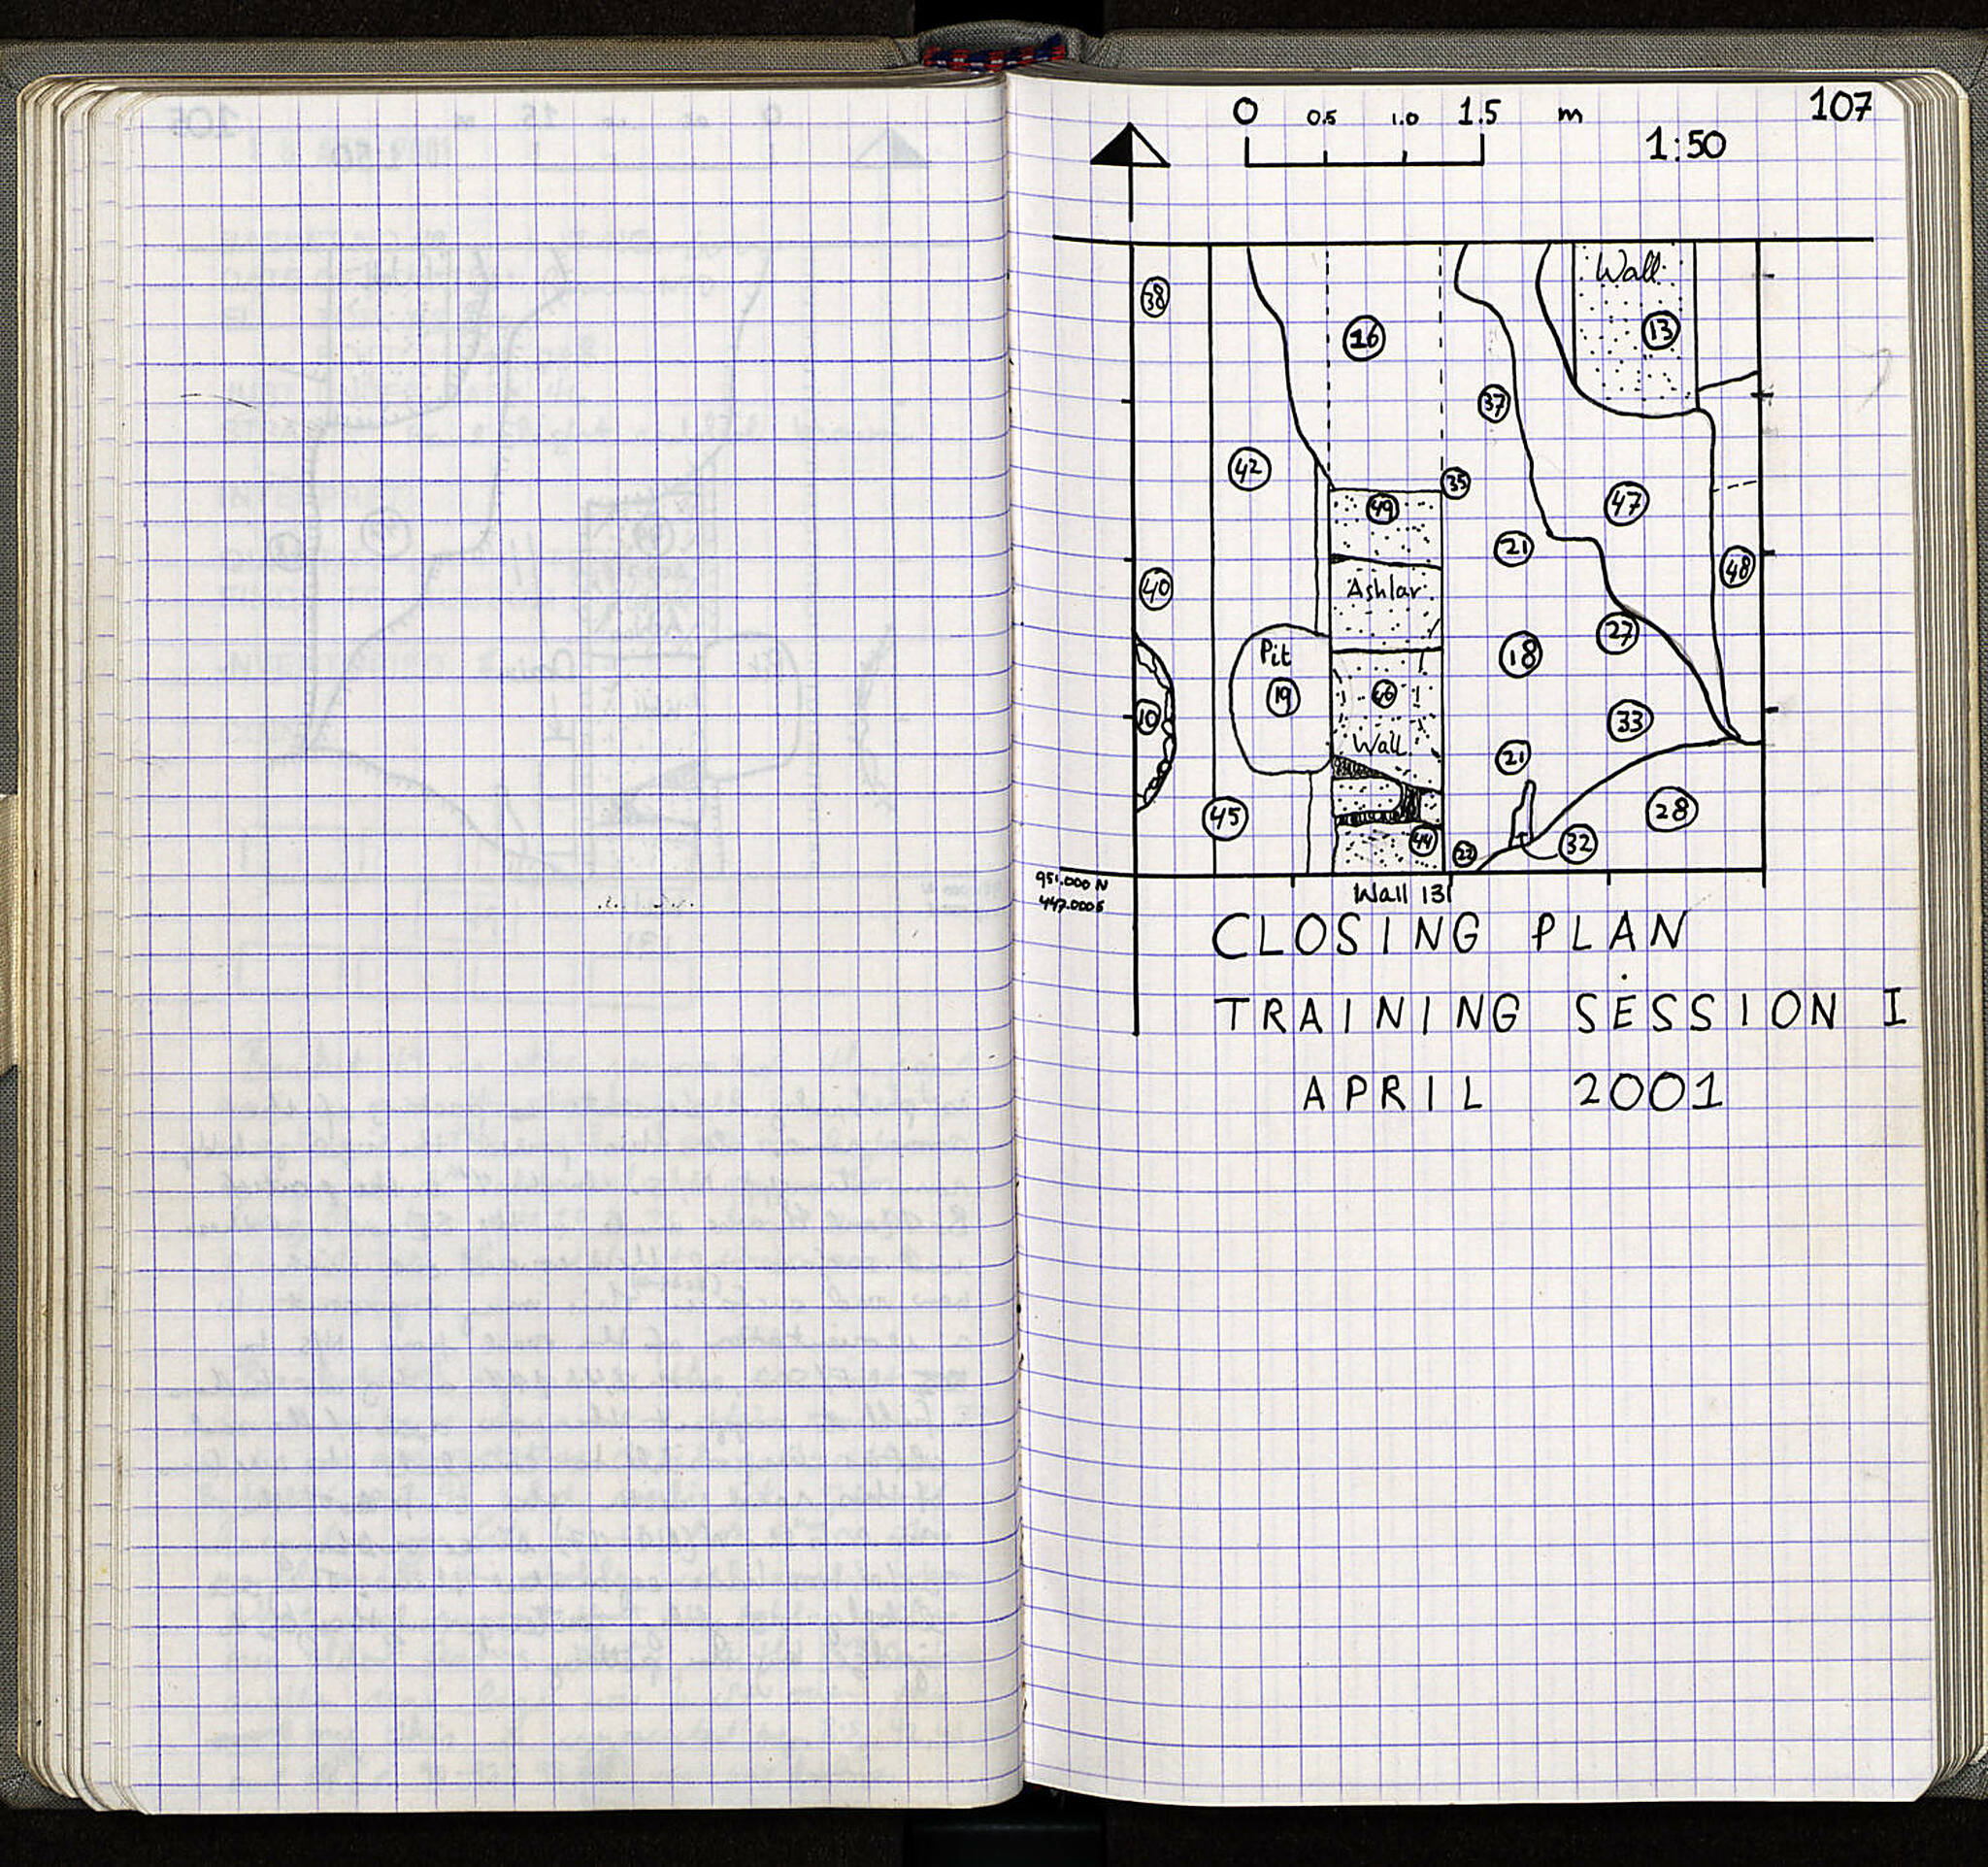 0 0.5 1.0 1.5 m 107
1:50
Wall
38
16
13
37
42
35
49
47
21
48
40
Ashlar
27
Pit
18
19
10
33
Wall
21
45
28
44
32
22
Wall 131
CLOSING PLAN
TRAINING SESSION I
APRIL 2001